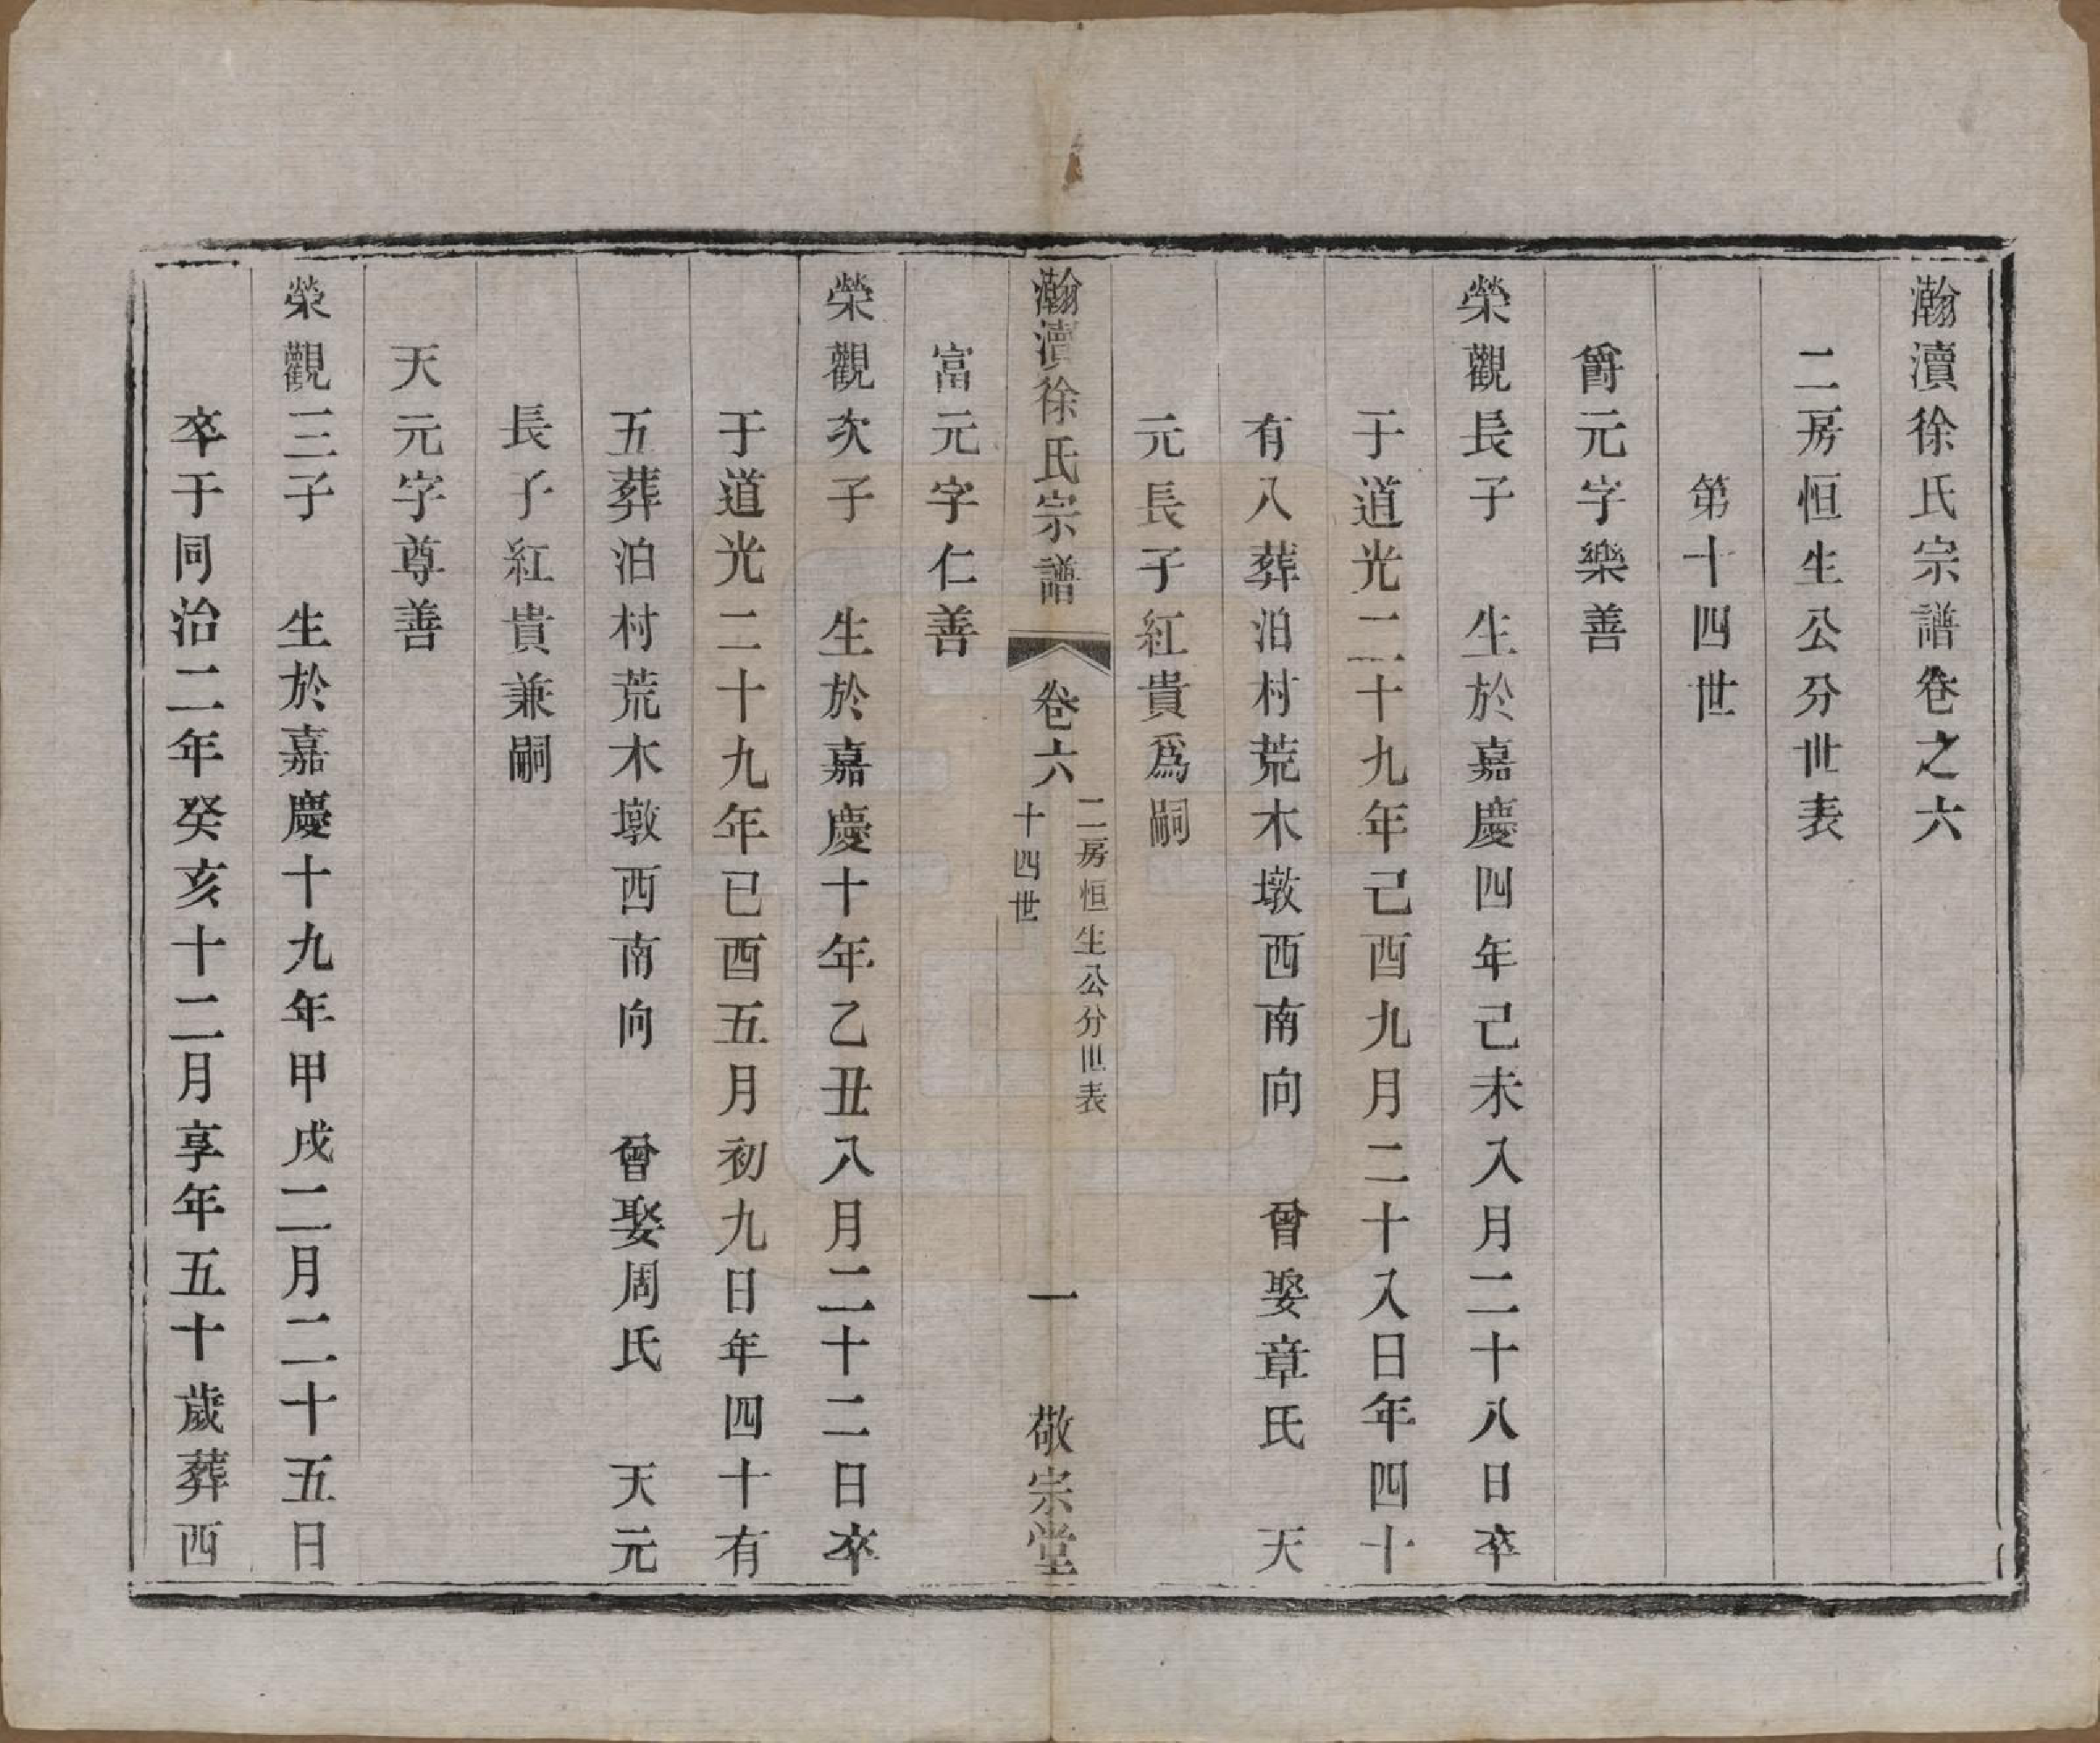 瀚瀆徐氏宗譜卷之六
二房恒生公分世表
第十四世
爵元字樂善
榮觀長子　生於嘉慶四年己未八月二十八日卒
于道光二十九年己酉九月二十八日年四十
有八葬泊村荒木墩西南向　曾娶章氏　天
元長子紅貴爲嗣
瀚瀆徐氏宗譜　卷六　二房恒生公分世表
十四世
一　敬宗堂
富元字仁善
榮觀次子　生於嘉慶十年乙丑八月二十二日卒
于道光二十九年已酉五月初九日年四十有
五葬泊村荒木墩西南向　曾娶周氏　天元
長子紅貴兼嗣
天元字尊善
榮觀三子　生於嘉慶十九年甲戌二月二十五日
卒于同治二年癸亥十二月享年五十歲葬西